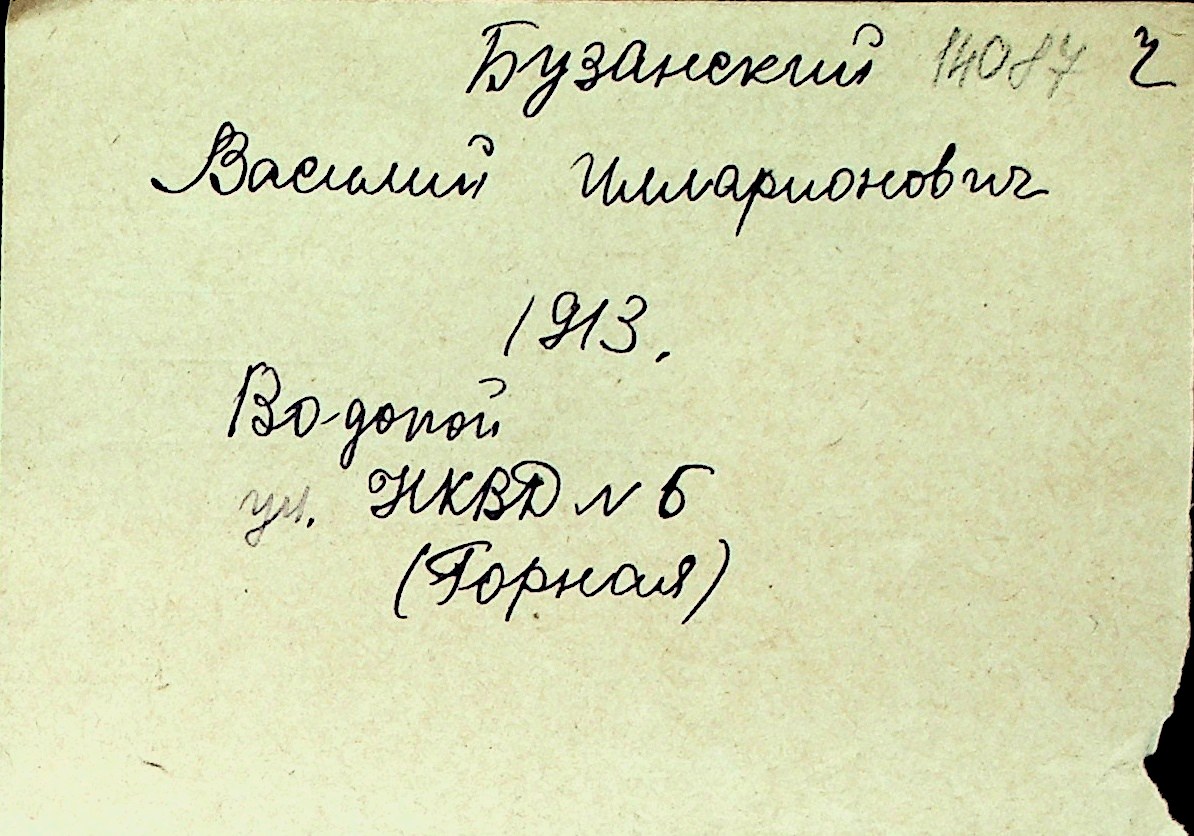 Бузанский 14087 ч
Василий Илларионович
1913.
Водопой
ул. НКВД № 6
(Горная)